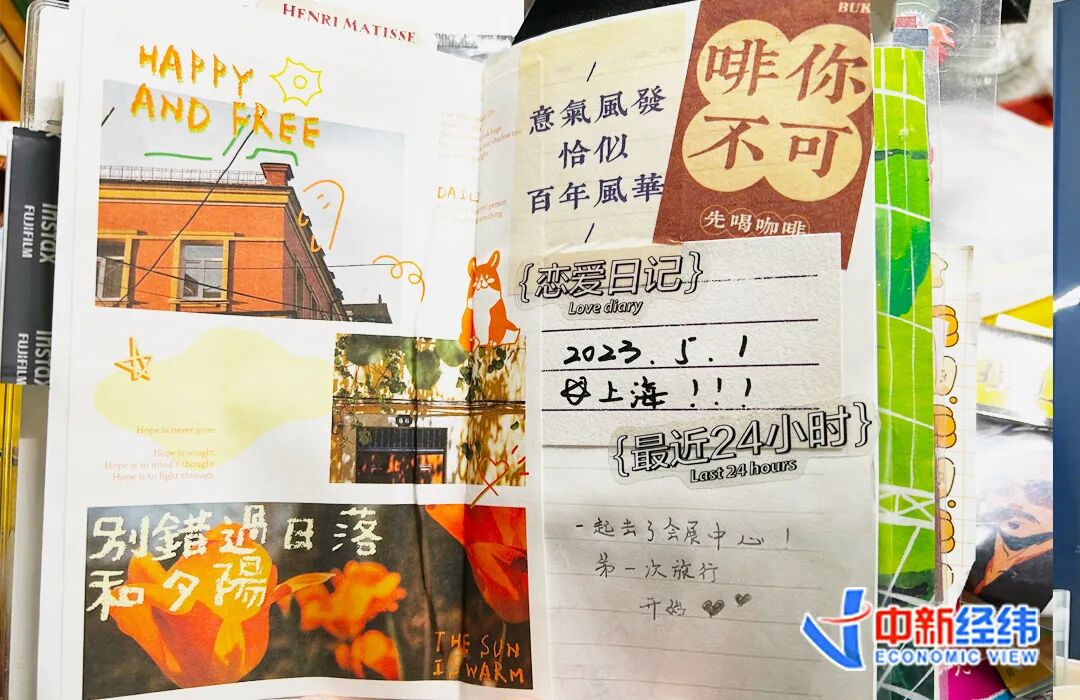 HENRI MATISSE
HAPPY
AND FREE
DAILY
Hope is never gone
Hope is sought
Hope is in mind's thought
Hope is to fight through
别錯過日落
和夕陽
THE SUN
IS WARM
INSTAX
FUJIFILM
INSTAX
FUJIFILM
意氣風發
恰似
百年風華
BUK
啡你
不可
先喝咖啡
{恋爱日记}
Love diary
2023.5.1
上海!!!
{最近24小时}
Last 24 hours
一起去了会展中心!
第一次旅行
开始
中新经纬
ECONOMIC VIEW